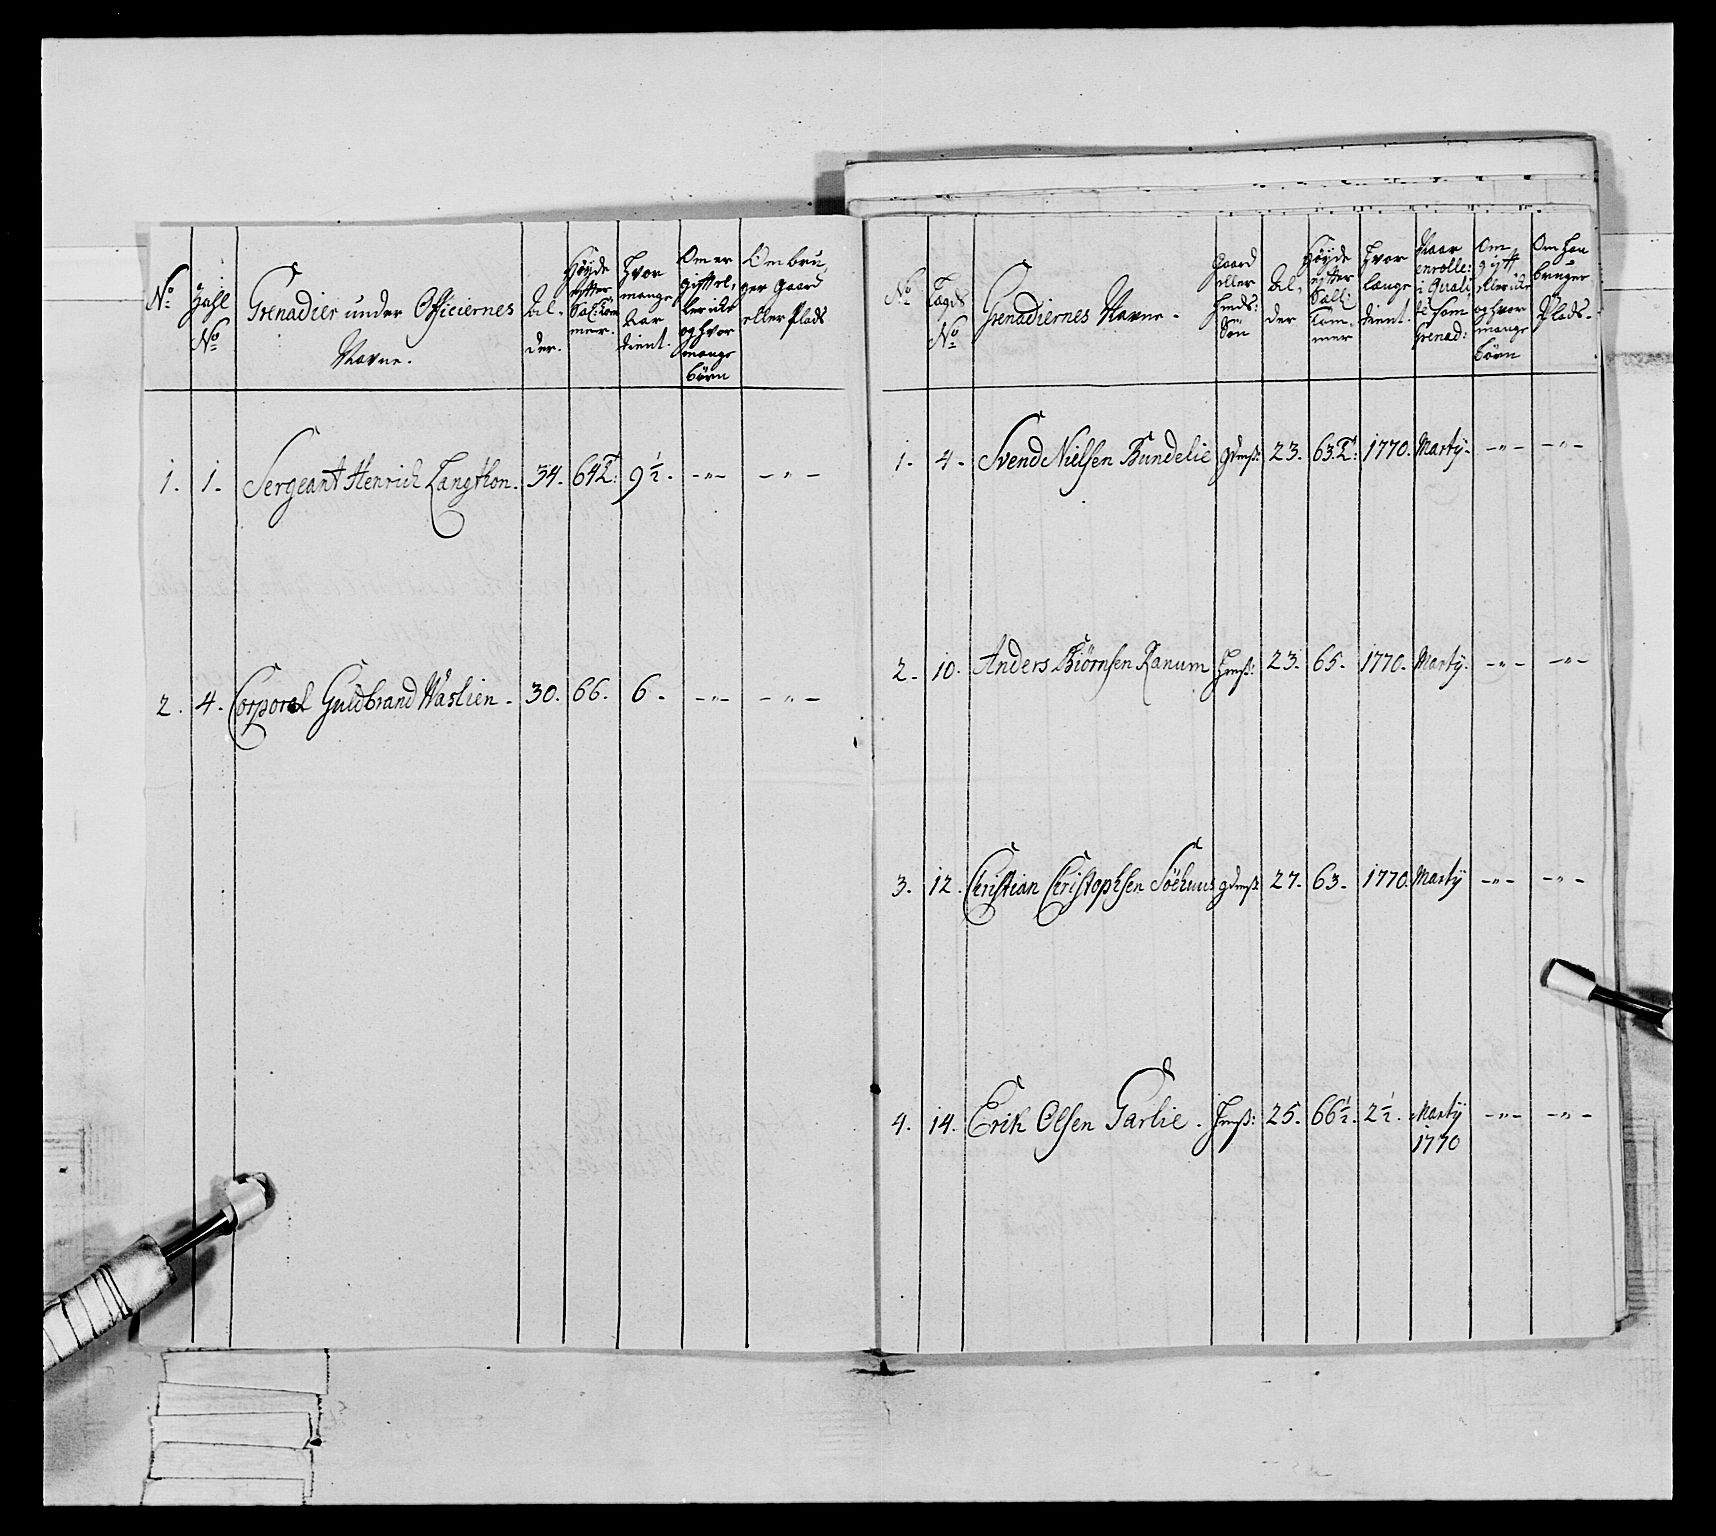 No
Zahl No
Grenadier under Officiernes Navne.
Al-der.
Høyde efter Sal: Tommer.
Hvor mange Aar tient.
Om er gift eller icke og hvor mange børn
Om bruger Gaard eller Plads
1. 1. Sergeant Henrich Langthon. 34. 64 T: 9½. -"- -"-
2. 4. Corporal Guldbrand Waslien. 30. 66. 6. -"- -"-
No
Lægds No
Grenadiernes Navne.
Gaard eller Huds: Søn
Al-der
Høyde efter Sall: Tommer
Hvor længe tient.
Naar enrolle: i Qualité som Grenad:
Om gift eller icke og hvor mange børn
Om han bruger Plads.
1. 4. Svend Nielsen Bundelie gdmß: 23. 63. T: 1770. Marty. -"- -"-
2. 10. Anders Biörnsen Ranum Hmß: 23. 65. 1770. Marty. -"- -"-
3. 12. Christian Christophsen Söehuus gdmß 27. 63. 1770. Marty -"- -"-
4. 14. Erik Olsen Garlie. Hmß: 25. 66½. 2½. Marty -"- -"-
1770